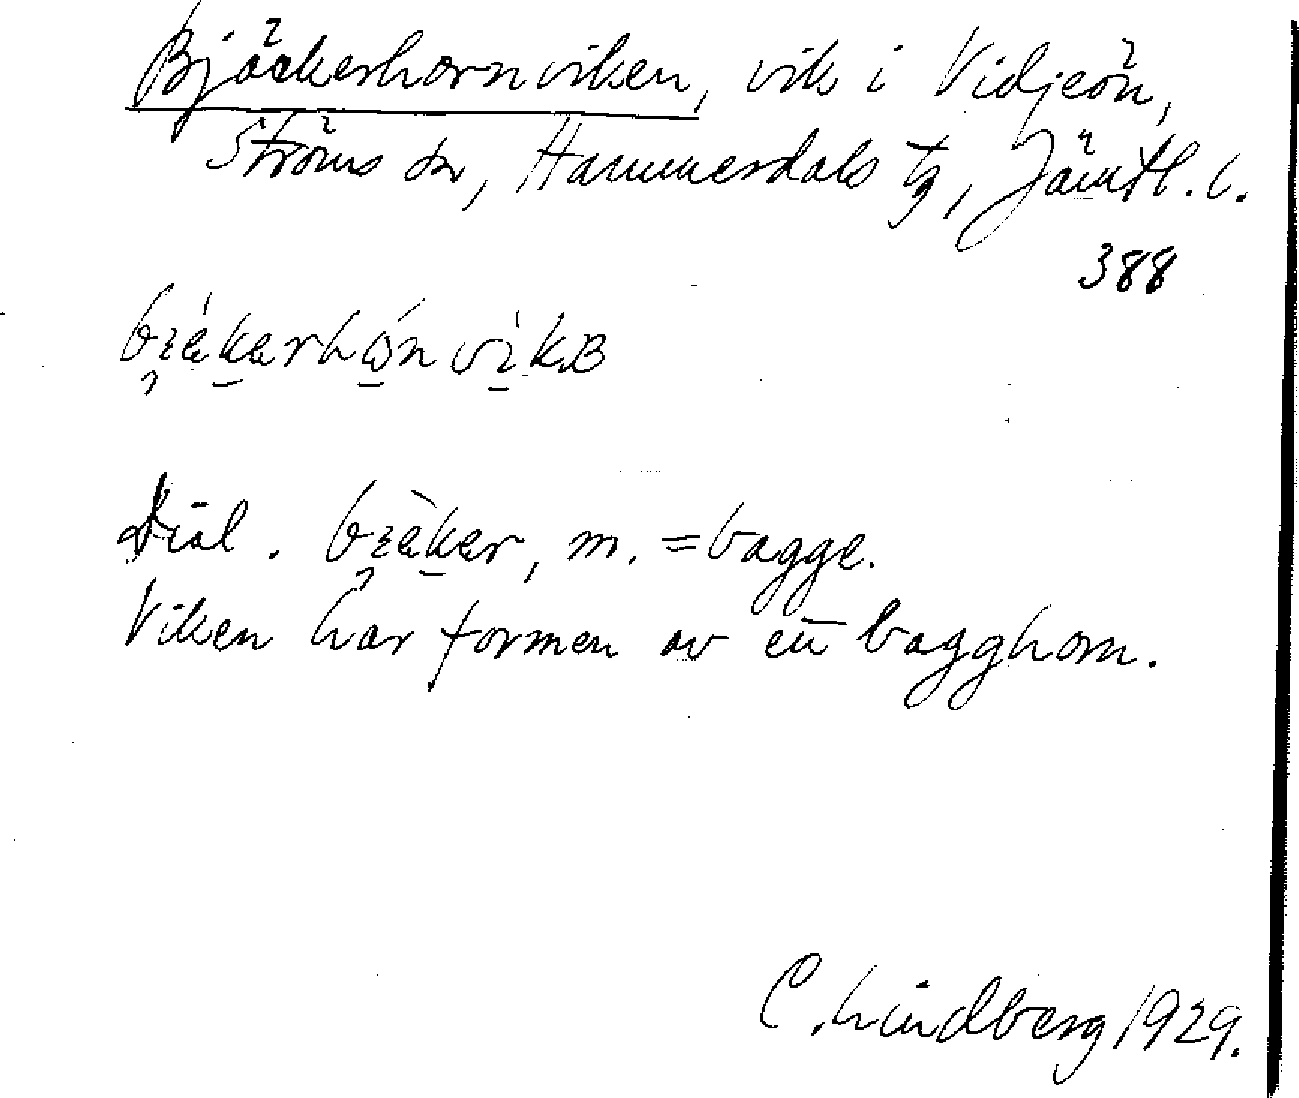 Bjäckerhornviken, vik i Vidjeön,
Ströms sn, Hammerdals tg, Jämtl. l.
388
Dial. m. = bagge.
Viken har formen av en bagghorn.
C. Lindberg 1929.